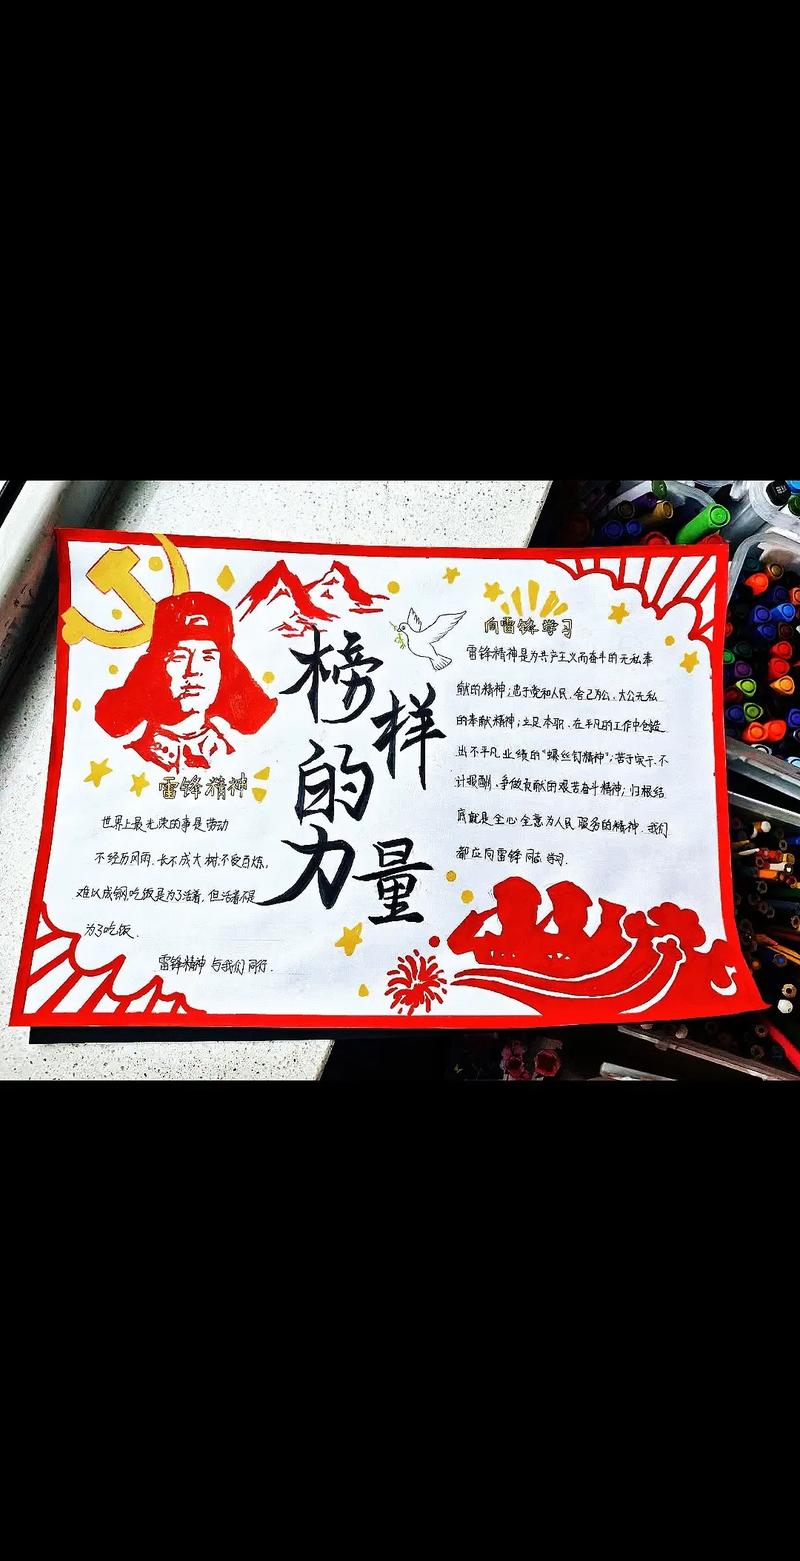 榜样
的
力量
雷锋精神
世界上最光荣的事是劳动
不经历风雨、长不成大树;不受百炼,
难以成钢.吃饭是为了活着,但活着不是
为了吃饭.
雷锋精神 与我们同行.
向雷锋学习
雷锋精神是为共产主义而奋斗的无私奉
献的精神;忠于党和人民、舍己为公、大公无私
的奉献精神;立足本职、在平凡的工作中创造
出不平凡业绩的"螺丝钉精神";苦于实干、不
计报酬、争做贡献的艰苦奋斗精神;归根结
底就是全心全意为人民服务的精神.我们
都应向雷锋同志学习.